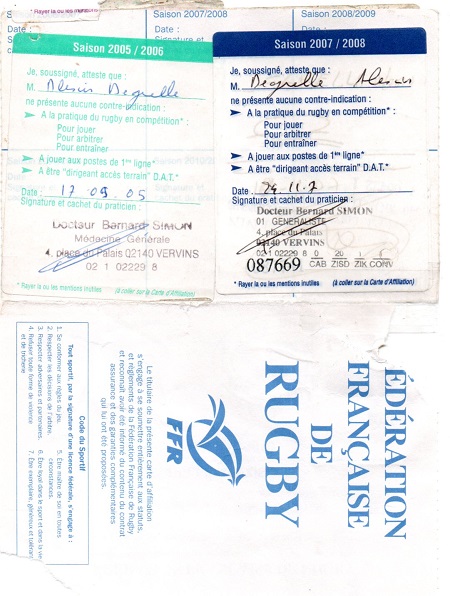 * Rayer la ou les mentions
Saison 2007/2008
Saison 2008/2009
Date :
Date :
Date :
Signature et
Saison 2005 / 2006
Je, soussigné, atteste que :
M. Alexis Degrelle
ne présente aucune contre-indication :
A la pratique du rugby en compétition* :
Pour jouer
Pour arbitrer
Pour entraîner
A jouer aux postes de 1ère ligne*
A être "dirigeant accès terrain" D.A.T.*
Date : 17.09.05
Signature et cachet du praticien :
Docteur Bernard SIMON
Médecine Générale
4, place du Palais 02140 VERVINS
02 1 02229 8
* Rayer la ou les mentions inutiles
(à coller sur la Carte d'Affiliation)
Saison 2007 / 2008
Je, soussigné, atteste que :
M. Degrelle Alexis
ne présente aucune contre-indication :
A la pratique du rugby en compétition* :
Pour jouer
Pour arbitrer
Pour entraîner
A jouer aux postes de 1ère ligne*
A être "dirigeant accès terrain" D.A.T.*
Date : 29.11.7
Signature et cachet du praticien :
Docteur Bernard SIMON
01 GENERALISTE
4, place du Palais
02140 VERVINS
02 1 02229 8 0 20 1
087669 CAB ZISD ZIK CONV
* Rayer la ou les mentions inutiles
(à coller sur la Carte d'Affiliation)
ÉDÉRATION
FRANÇAISE
DE
RUGBY
FFR
Le titulaire de la présente carte d'affiliation
s'engage à se soumettre entièrement aux statuts,
et règlements de la Fédération Française de Rugby
et reconnaît avoir été informé du contenu du contrat
assurance et des garanties complémentaires
qui lui ont été proposées.
Code du Sportif
Tout sportif, par la signature d'une licence fédérale, s'engage à :
1. Se conformer aux règles du jeu.
2. Respecter les décisions de l'arbitre.
3. Respecter adversaires et partenaires.
4. Refuser toute forme de violence
et de tricherie
5. Être maître de soi en toutes
circonstances.
6. Être loyal dans le sport et dans la vie
7. Être exemplaire, généreux et tolérant